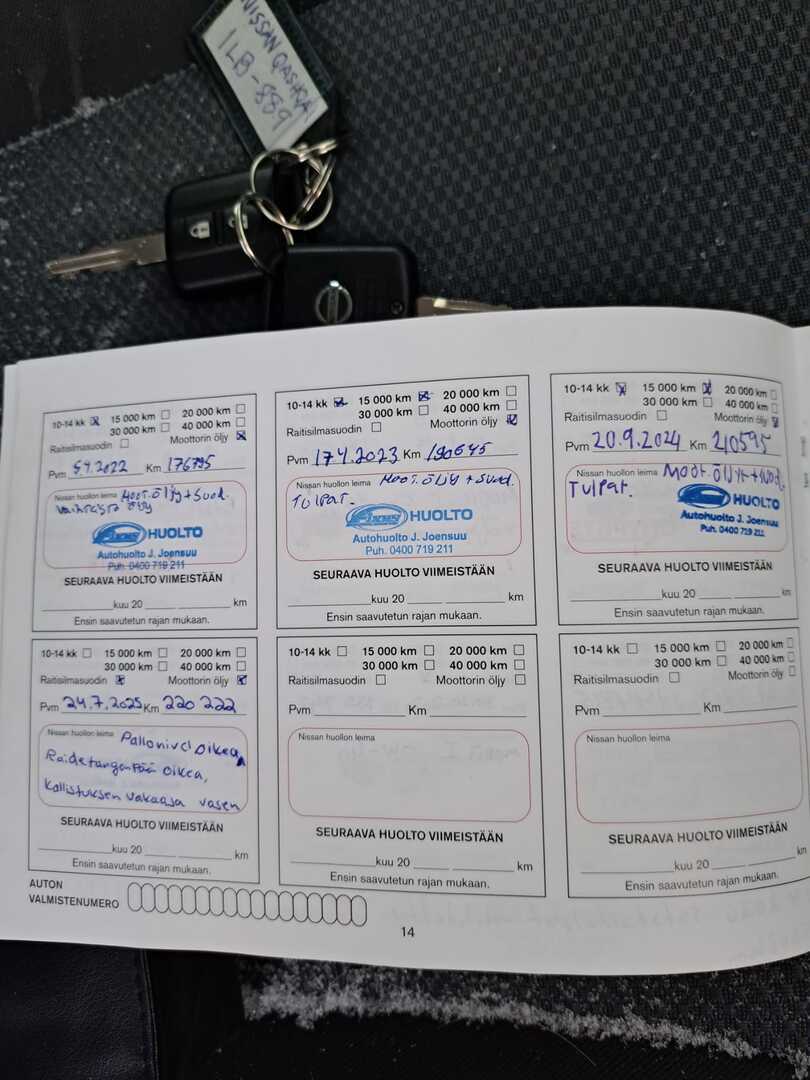 NISSAN QASHQAI
ILB-889
10-14 kk 15 000 km 20 000 km
30 000 km 40 000 km
Raitisilmasuodin Moottorin öljy
Pvm 5.9.2022 Km 176795
Nissan huollon leima Moot.öljy + suod.
Vaihteisto öljy
HUOLTO
Autohuolto J. Joensuu
Puh. 0400 719 211
SEURAAVA HUOLTO VIIMEISTÄÄN
kuu 20 km
Ensin saavutetun rajan mukaan.
10-14 kk 15 000 km 20 000 km
30 000 km 40 000 km
Raitisilmasuodin Moottorin öljy
Pvm 17.4.2023 Km 190645
Nissan huollon leima Moot.öljy + suod.
Tulpat.
HUOLTO
Autohuolto J. Joensuu
Puh. 0400 719 211
SEURAAVA HUOLTO VIIMEISTÄÄN
kuu 20 km
Ensin saavutetun rajan mukaan.
10-14 kk 15 000 km 20 000 km
30 000 km 40 000 km
Raitisilmasuodin Moottorin öljy
Pvm 20.9.2024 Km 210595
Nissan huollon leima Moot.öljyt + suod.
Tulpat.
HUOLTO
Autohuolto J. Joensuu
Puh. 0400 719 211
SEURAAVA HUOLTO VIIMEISTÄÄN
kuu 20 km
Ensin saavutetun rajan mukaan.
10-14 kk 15 000 km 20 000 km
30 000 km 40 000 km
Raitisilmasuodin Moottorin öljy
Pvm 24.7.2025 Km 220 222
Nissan huollon leima Pallonivel oikea,
Raidetangonpää oikea,
Kallistuksen vakaaja vasen
SEURAAVA HUOLTO VIIMEISTÄÄN
kuu 20 km
Ensin saavutetun rajan mukaan.
10-14 kk 15 000 km 20 000 km
30 000 km 40 000 km
Raitisilmasuodin Moottorin öljy
Pvm Km
Nissan huollon leima
SEURAAVA HUOLTO VIIMEISTÄÄN
kuu 20 km
Ensin saavutetun rajan mukaan.
10-14 kk 15 000 km 20 000 km
30 000 km 40 000 km
Raitisilmasuodin Moottorin öljy
Pvm Km
Nissan huollon leima
SEURAAVA HUOLTO VIIMEISTÄÄN
kuu 20 km
Ensin saavutetun rajan mukaan.
AUTON
VALMISTENUMERO
14